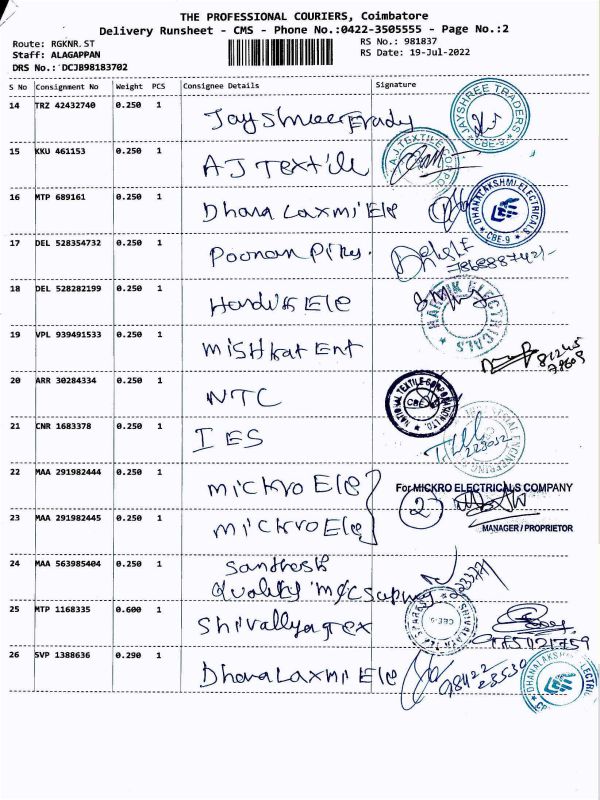 THE PROFESSIONAL COURIERS, Coimbatore
Delivery Runsheet - CMS - Phone No.:0422-3505555 - Page No.:2
Route: RGKNR.ST RS No.: 981837
Staff: ALAGAPPAN RS Date: 19-Jul-2022
DRS No.: DCJB98183702
S No Consignment No Weight PCS Consignee Details Signature
14 TRZ 42432740 0.250 1 Jay Shree JAYSHREE TRADERS CBE-9
15 KKU 461153 0.250 1 AJ Textile A.J. TEXTILE
16 MTP 689161 0.250 1 Dhana Laxmi Ele DHANALAKSHMI ELECTRICALS CBE-9
17 DEL 528354732 0.250 1 Poonam
18 DEL 528282199 0.250 1 Hardik Ele HARDIK ELECTRICALS
19 VPL 939491533 0.250 1 Mishkat Ent
20 ARR 30284334 0.250 1 NTC NATIONAL TEXTILE CORPORATION LTD. CBE
21 CNR 1683378 0.250 1 IES
22 MAA 291982444 0.250 1 Mickro Ele For MICKRO ELECTRICALS COMPANY
2
23 MAA 291982445 0.250 1 Mickro Ele MANAGER / PROPRIETOR
24 MAA 563985404 0.250 1 Santhosh
Quality M/C
25 MTP 1168335 0.600 1 CBE-9
26 SVP 1388636 0.290 1 Dhana Laxmi Ele 98422 23530 DHANALAKSHMI